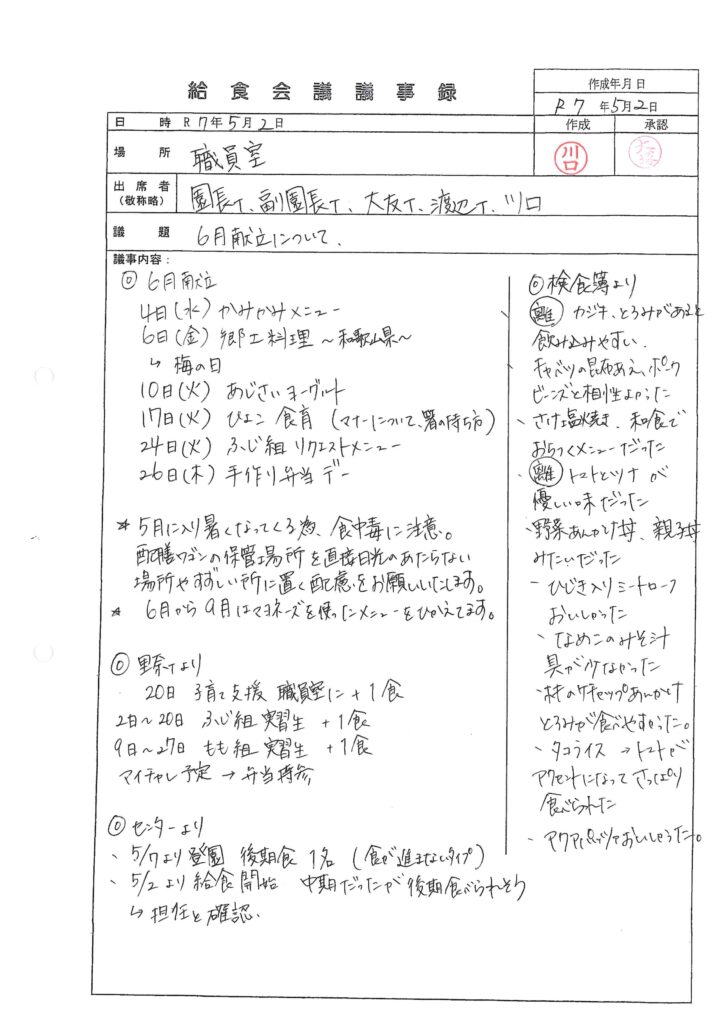 給食会議議事録
作成年月日
R7 年5月2日
作成 承認
川口
日時 R7年5月2日
場所 職員室
出席者(敬称略) 園長T、副園長T、大友T、渡辺T、川口
議題 6月献立について、
議事内容:
◎6月献立
4日(水) かみかみメニュー
6日(金) 郷土料理 〜和歌山県〜
↳ 梅の日
10日(火) あじさいヨーグルト
17日(火) ひよこ 食育 (マナーについて、箸の持ち方)
24日(火) ふじ組 リクエストメニュー
26日(木) 手作り弁当デー
★ 5月に入り暑くなってくる為、食中毒に注意。
配膳ワゴンの保管場所を直接日光のあたらない
場所やすずしい所に置く配慮をお願いいたします。
★ 6月から9月はマヨネーズを使ったメニューをひかえてます。
◎ 里奈Tより
20日 子育て支援 職員室に +1食
2日〜20日 ふじ組 実習生 +1食
9日〜27日 もも組 実習生 +1食
マイチャレ予定 → 弁当持参
◎ センターより
、5/7より登園 後期食 1名 (食が進まないタイプ)
、5/2より給食開始 中期だったが後期食べられそう
↳ 担任と確認、
◎検食簿より
(離) カジキ、とろみがあると
飲み込みやすい、
キャベツの昆布あえ、ポーク
ビーンズと相性よかった
、さけ塩焼き、和食で
おちつくメニューだった
、(離) トマトとツナが
優しい味だった
、野菜あんかけ丼、親子丼
みたいだった
、ひじき入りミートローフ
おいしかった
、なめこのみそ汁
具が少なかった
のケチャップあんかけ
とろみが食べやすかった。
、タコライス → トマトが
アクセントになってさっぱり
食べられた
、アクアパッツァおいしかった。